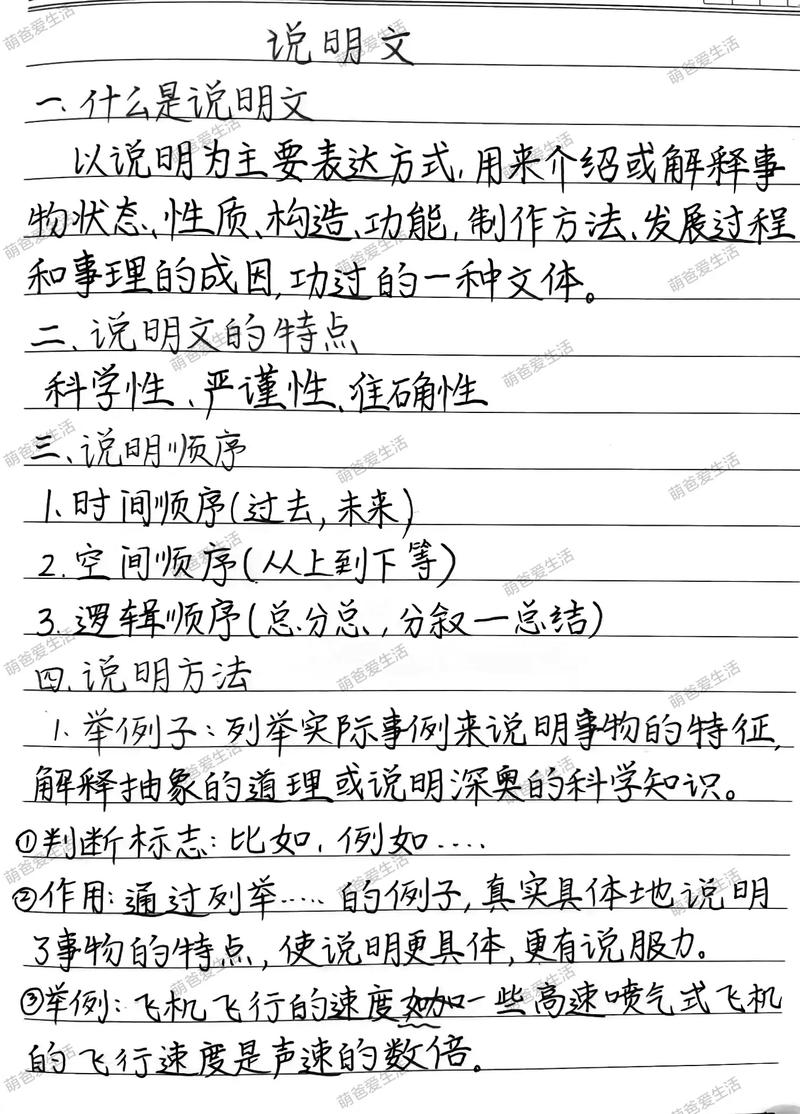 说明文
一、什么是说明文
以说明为主要表达方式,用来介绍或解释事
物状态、性质、构造、功能,制作方法、发展过程
和事理的成因,功过的一种文体。
二、说明文的特点
科学性、严谨性、准确性
三、说明顺序
1.时间顺序(过去,未来)
2.空间顺序(从上到下等)
3.逻辑顺序(总分总,分叙一总结)
四.说明方法
1.举例子:列举实际事例来说明事物的特征,
解释抽象的道理或说明深奥的科学知识。
①判断标志:比如,例如....
②作用:通过列举....的例子,真实具体地说明
了事物的特点,使说明更具体,更有说服力。
③举例:飞机飞行的速度如一些高速喷气式飞机
的飞行速度是声速的数倍。
萌爸爱生活